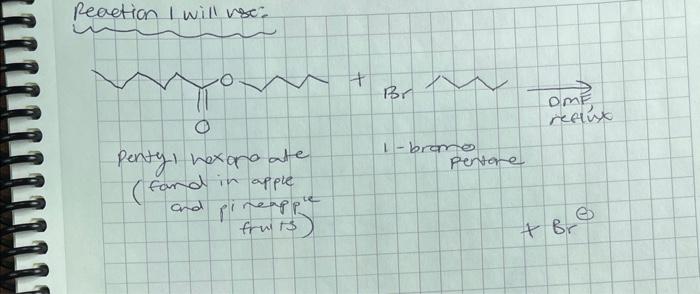 Reaction I will use:
O
+
Br
DMF,
reflux
O
Pentyl hexanoate
(found in apple
and pineapple
fruits)
1-bromo
pentane
+ Br⊖